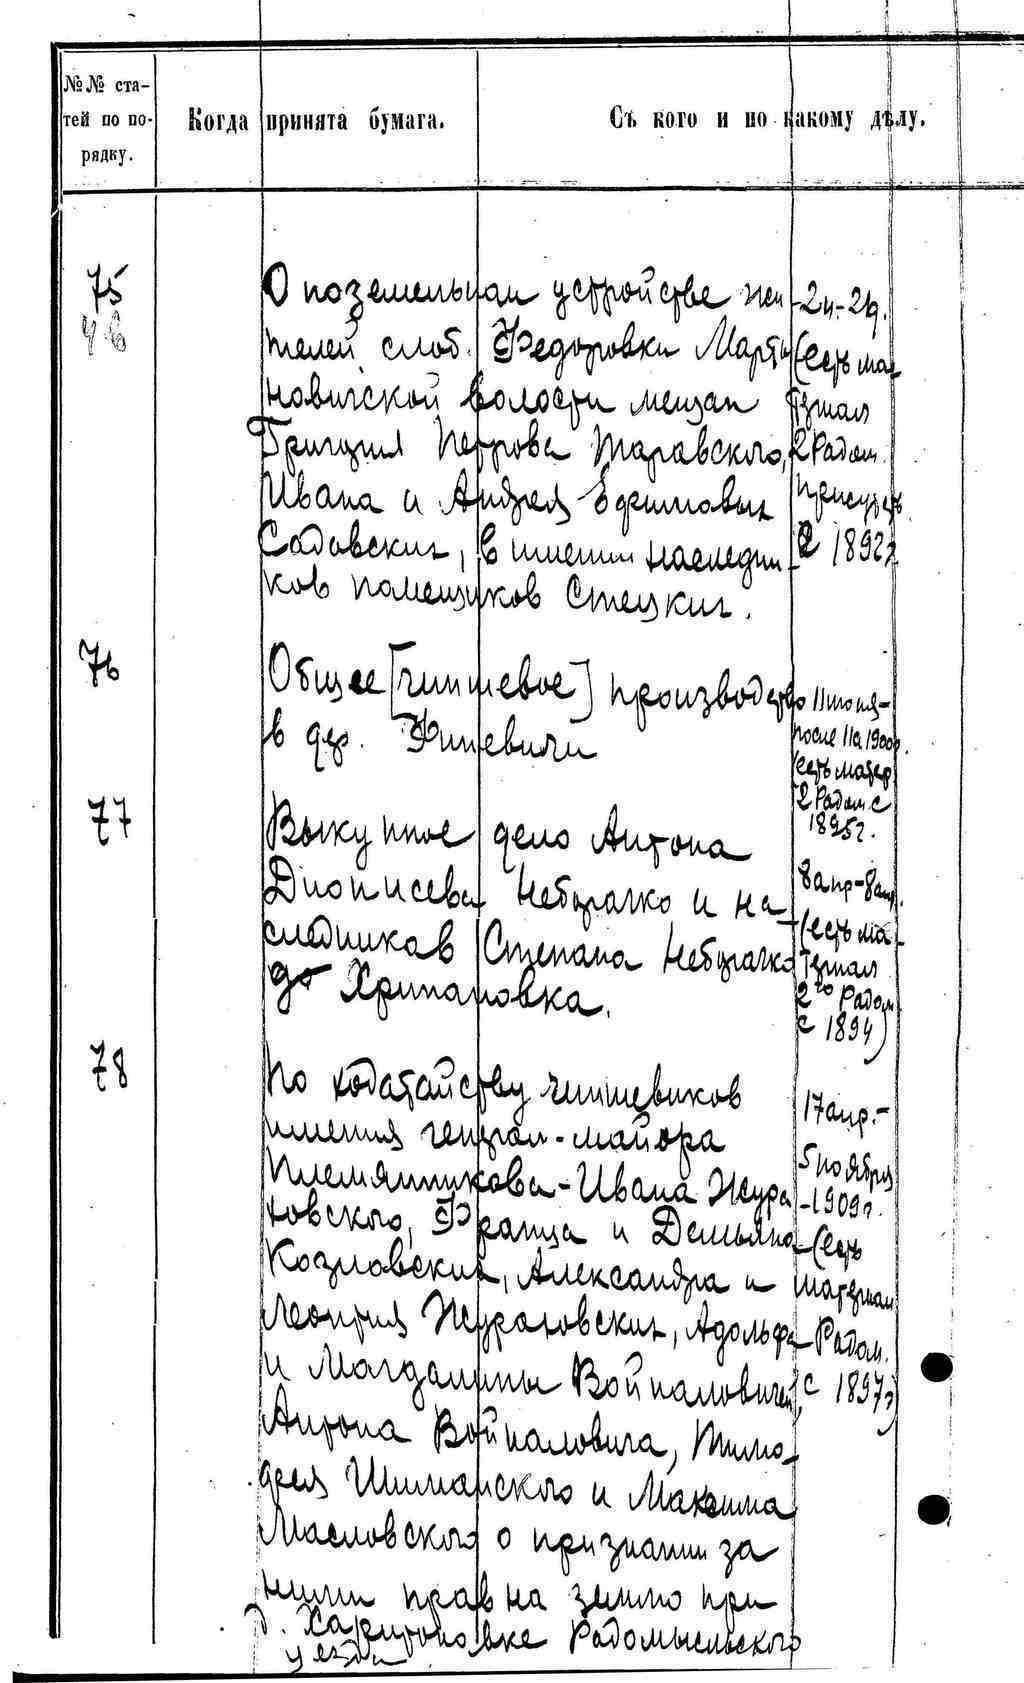 №№ ста-
тей по по-
рядку.
Когда принята бумага.
Съ кого и по какому дѣлу.
75
О поземельном устройстве жи-
телей слоб. Федоровки Марты-
новичской волости мещан
Григория Петрова Таравского,
Ивана и Андрея Ефимовых
Садовских, в имении наследни-
ков помещиков Стецких.
2 Радом.
с 1892г
76
Общее [чиншевое] производство
в дер. Финевичи
11 июня-
после 11а 1900г.
(есть матер.
2 Радом. с
1895г.
77
Выкупное дело Антона
Дионисева Небораčко и на-
следников Степана Неборачко
Хрипановка.
8 апр-8 апр.
(есть ма-
териал
2го Радом.
с 1894)
78
По ходатайству чиншевиков
имения генерал-майора
Племянникова-Ивана Жура-
ховского, Франца и Демьяна
Козловских, Александра и
Леонтия Журавовских, Адольфа
и Магдалины Войналовичей,
Антона Войналовича, Тимо-
фея Шиманского и Максима
Масловского о признании за
ними прав на землю при
д. Харитоновке Радомысльского
уезда
17 апр.-
5 ноября
-1909г.
(есть
материал
Радом.
с 1897г)